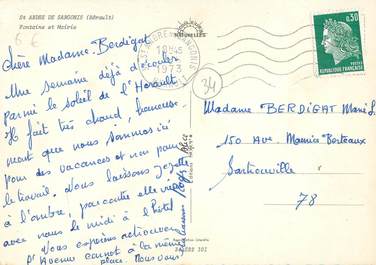 St ANDRE DE SANGONIS (Hérault)
Fontaine et Mairie
6 €
NATURELLES
ST ANDRE DE SANGONIS
18H45
1973
HERAULT
0,30
POSTES
REPUBLIQUE FRANÇAISE
34
Chère Madame Berdigat
Une semaine déjà d'écoulée
parmi le soleil de l'Hérault
Il fait très chaud, heureuse-
ment que nous sommes ici
pour des vacances et non pour
le travail. Nous laissons
à l'ombre, par contre elle vient
avec nous le midi à l'hôtel
Nous espérons
Avenue Carnot à la même
place. Nous vous
Madame BERDIGAT Marie
150 Ave Maurice Berteaux
Sartrouville
78